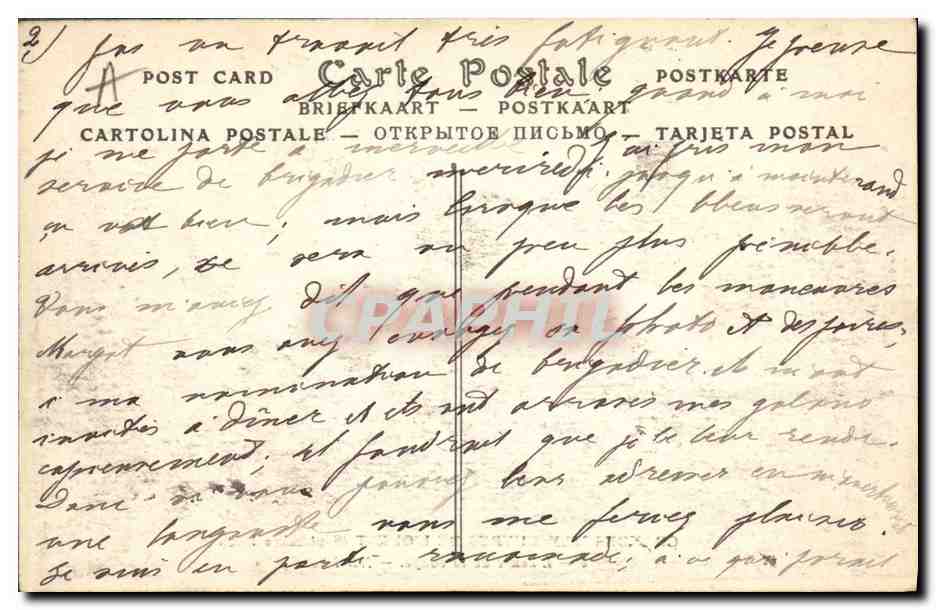 2) pas un travail très fatiguant. Je pense
A
POST CARD Carte Postale POSTKARTE
que vous allez tous bien; quand à moi
BRIEFKAART — POSTKAART
CARTOLINA POSTALE — ОТКРЫТОЕ ПИСЬМО — TARJETA POSTAL
je me porte à merveille. J'ai pris mon
service de brigadier mercredi. jusqu'à maintenand
ça va bien; mais lorsque les bleus seront
arrivés, se sera un peu plus pénible.
Vous m'avez dit que pendant les manœuvres
Margot vous avez envoyer sa photo et des poires,
à ma nomination de brigadier. il m'ont
invités à dîner et ils ont arrosés mes galons
; il faudrait que je le leur rende.
Donc si vous pouvez leur adresser en
une langouste vous me ferez plaisir
Je suis en parti remboursé, à ce qui
CPAPHIL